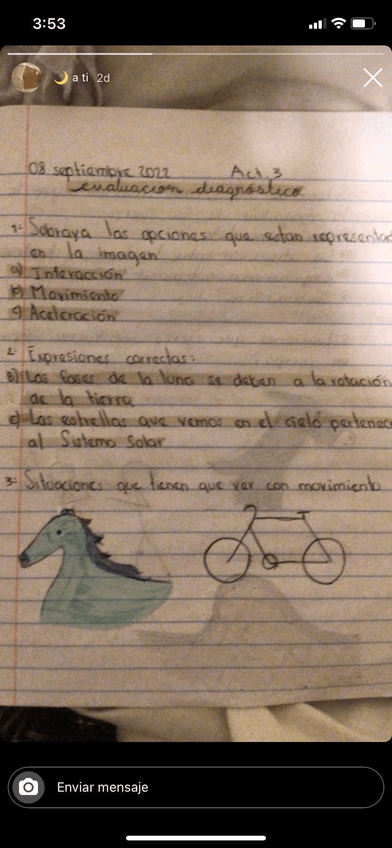 3:53
a ti 2d
08 septiembre 2022 Act. 3
evaluacion diagnóstico
1- Subraya las opciones que estan representad
en la imagen
a) Interacción
b) Movimiento
c) Aceleración
2- Expresiones correctas:
B) Las fases de la luna se deben a la rotación
de la tierra
c) Las estrellas que vemos en el cielo pertenec
al Sistema Solar
3- Situaciones que tienen que ver con movimiento
Enviar mensaje